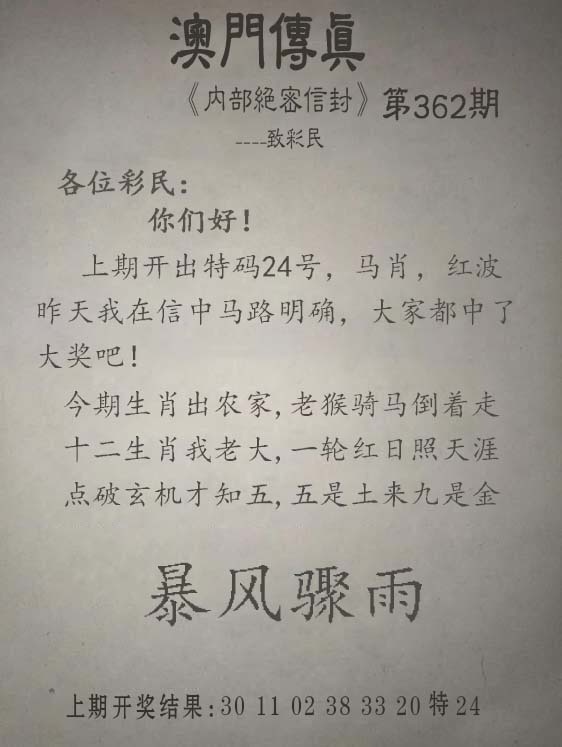 澳門傳眞
《内部絕密信封》第362期
----致彩民
各位彩民：
你们好！
上期开出特码24号，马肖，红波
昨天我在信中马路明确，大家都中了
大奖吧！
今期生肖出农家,老猴骑马倒着走
十二生肖我老大,一轮红日照天涯
点破玄机才知五,五是土来九是金
暴风骤雨
上期开奖结果:30 11 02 38 33 20特24